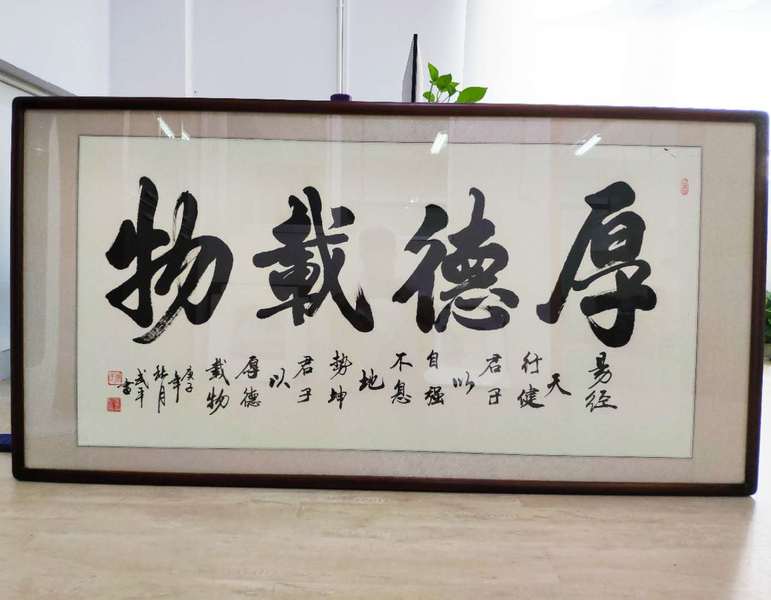 厚德載物
易经
天
行健
君子
以
自强
不息
地
势坤
君子
以
厚德
載物
庚子
年
月
書